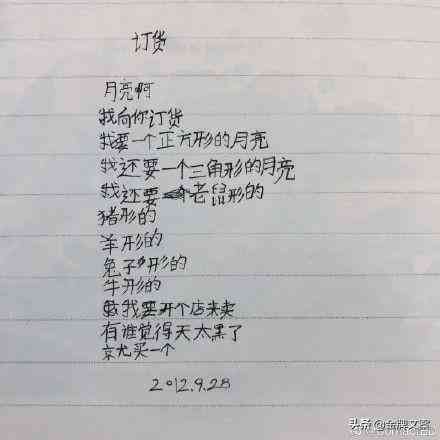 订货
月亮啊
我向你订货
我要一个正方形的月亮
我还要一个三角形的月亮
我还要一个老鼠形的
猪形的
羊形的
兔子形的
牛形的
我要开个店来卖
有谁觉得天太黑了
就买一个
2012.9.28
头条 @金牌文案